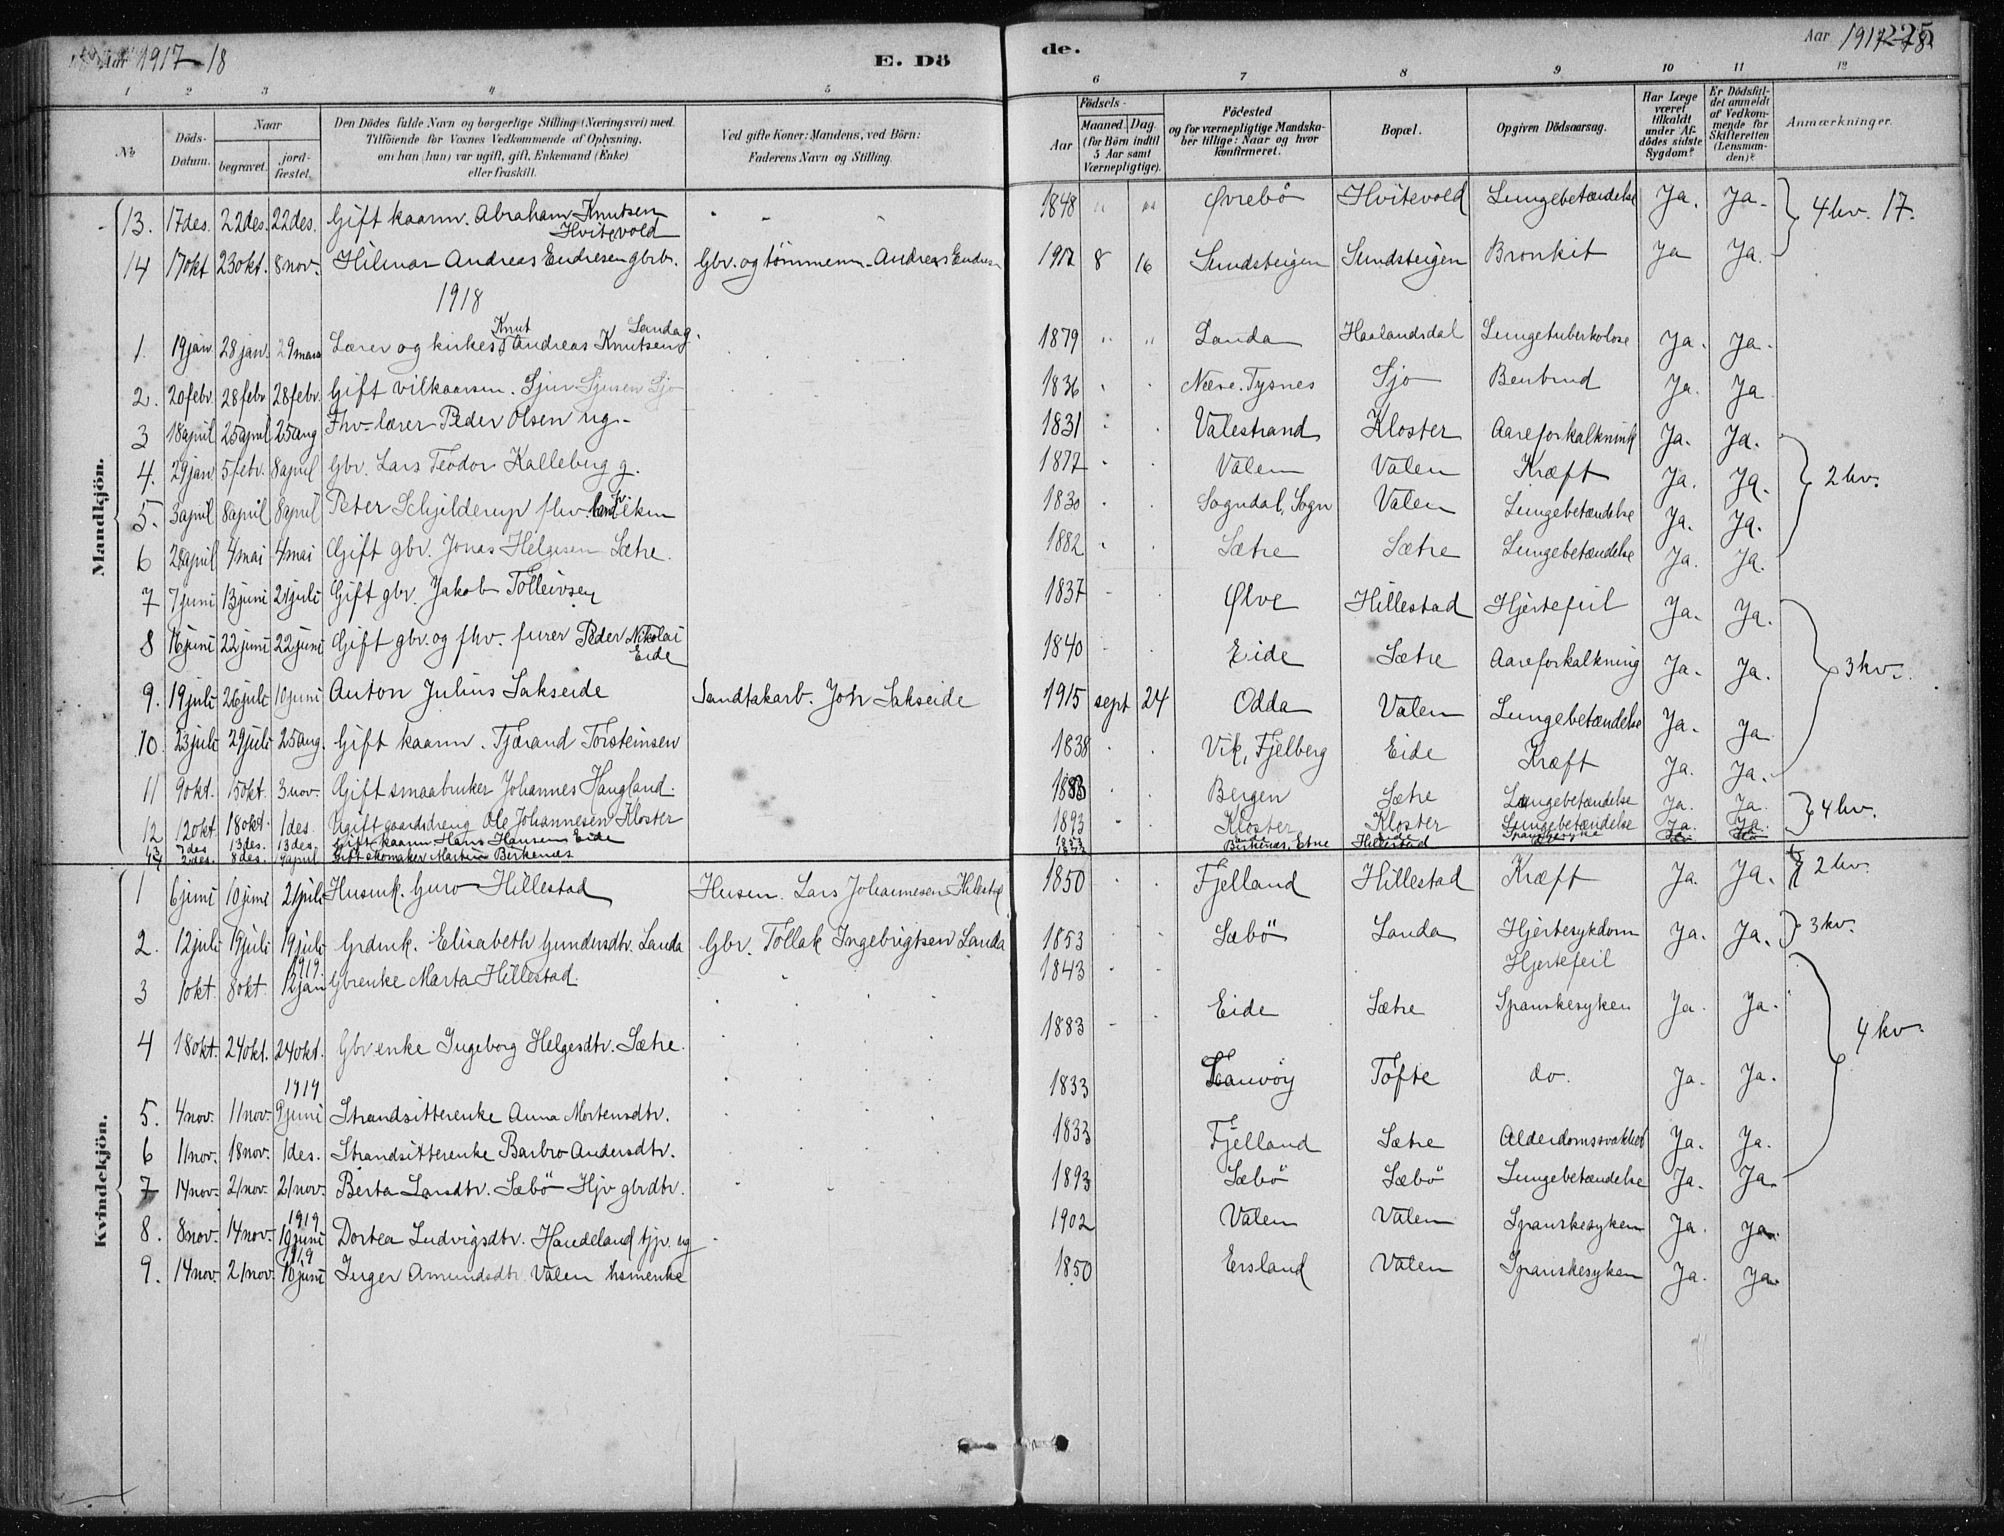 Aar 1917-18
E. Dö
de.
Aar 1917-18.
225
1 2 3 4 5 6 7 8 9 10 11 12
No
Döds-Datum.
Naar
begravet.
jord-fæstet.
Den Dödes fulde Navn og borgerlige Stilling (Næringsvei) med Tilföiende for Voxnes Vedkommende af Oplysning, om han (hun) var ugift, gift, Enkemand (Enke) eller fraskilt.
Ved gifte Koner: Mandens, ved Börn: Faderens Navn og Stilling.
Födsels-
Aar
Maaned. Dag.
(for Börn indtil 5 Aar samt Værnepligtige).
Födested og for værnepligtige Mandskaber tillige: Naar og hvor konfirmeret.
Bopæl.
Opgiven Dödsaarsag.
Har Læge været tilkaldt under Afdödes sidste Sygdom?
Er Dödsfaldet anmeldt af Vedkommende for Skifteretten (Lensmanden)?
Anmærkninger.
Mandkjön.
13. 17des. 22des. 22des. Gift kaarm. Abraham Knutsen Hvitevold 1848 Øvrebö Hvitevold Lungebetændelse Ja. Ja. 4 kv. 17.
14 17okt 23okt. 8nov. Hilmar Andreas Endresen gbrb. Gbr. og tømmerm. Andreas Endresen 1917 8 16 Sundsteigen Sundsteigen Bronkit Ja Ja.
1918
1. 19jan 28jan. 29mars Lærer og kirkes. Knut Andreas Knutsen Landa g. 1879 Landa Haalandsdal Lungetuberkolose Ja. Ja.
2. 20febr. 28febr. 28febr. Gift vilkaarsm. Sjur Sjursen Sjo 1836 Nære. Tysnes Sjo Benbrud Ja. Ja
3 18april 25april 25aug Fhv. lærer Peder Olsen ug. 1831 Valestrand Kloster Aareforkalkning Ja. Ja.
4. 29jan 5febr. 8april Gbr. Lars Teodor Kalleberg g. 1877 Valen Valen Kræft Ja. Ja. 2 kv.
5. 3april 8april 8april Peter Schjilderup fhv. ekm 1830 Sogndal, Sogn Valen Lungebetændelse Ja. Ja.
6 28april 4mai 4mai Gift gbr. Jonas Helgesen Sætre. 1882 Sætre Sætre Lungebetændelse Ja. Ja.
7 7juni 13juni 21juli Gift gbr. Jakob Tolleivsen 1837 Ølve Hillestad Hjertefeil Ja. Ja.
8 16juni 22juni 22juni Gift gbr. og fhv. furer Peder Nikolai Eide 1840 Eide Sætre Aareforkalkning Ja. Ja. 3 kv.
9. 19juli 26juli 10juni Anton Julius Sakseide Sandtakarb. Joh Sakseide 1915 sept 24 Odda Valen Lungebetændelse Ja. Ja
10. 23juli 29juli 25aug. Gift kaarm. Tjærand Torsteinsen 1838 Vik, Fjelberg Eide Kræft Ja. Ja.
11 9okt. 15okt. 3nov. Gift smaabruker Johannes Haugland. 1883 Bergen Sætre Lungebetændelse Ja. Ja.
12 12okt 18okt. 1des. Ugift gaardsdreng Ole Johannesen Kloster 1893 Kloster Kloster Lungebetændelse Ja. Ja. 4 kv.
13 7des 13des. 13des. Gift kaarm Hans Hansen Eide Eide Spanskesyke
14 2des. 8des. 7april Gift skomaker Martin Birkenæs Birkenæs, Etne Hillestad
Kvindekjön.
1 6juni 10juni 21juli Husmk. Guro Hillestad Husm. Lars Johannesen Hillestad 1850 Fjelland Hillestad Kræft Ja Ja. 2 kv.
2. 12juli 19juli 19juli Grdmk. Elisabeth Gundersdtr. Landa Gbr. Tollak Ingebrigtsen Landa 1853 Sæbö Landa Hjertesykdom Ja. Ja. 3 kv.
3 1okt. 8okt. 1919. 12jan Gbrenke Marta Hillestad. 1843 Hjertefeil
4 18okt. 24okt. 24okt. Gbrenke Ingeborg Helgesdtr. Sætre. 1883 Eide Sætre Spanskesyken Ja. Ja. 4 kv.
5. 4nov. 11nov. 1919 9juni Strandsitterenke Anna Mortensdtr. 1833 Tofte do. Ja. Ja.
6 11nov. 18nov. 1des. Strandsitterenke Barbro Andersdtr. 1833 Fjelland Sætre Alderdomssvakhet Ja. Ja.
7 14nov. 21nov. 21nov. Berta Larsdtr. Sæbö Hjv gbrdtr. 1893 Sæbö Sæbö Lungebetændelse Ja. Ja.
8. 8nov. 14nov. 1919 10juni Dortea Ludvigsdtr. Handeland tjp. ug 1902 Valen Valen Spanskesyken Ja. Ja.
9. 14nov. 21nov. 1919 10juni Inger Amundsdtr Valen hsmenke 1850 Ersland Valen Spanskesyken Ja. Ja.